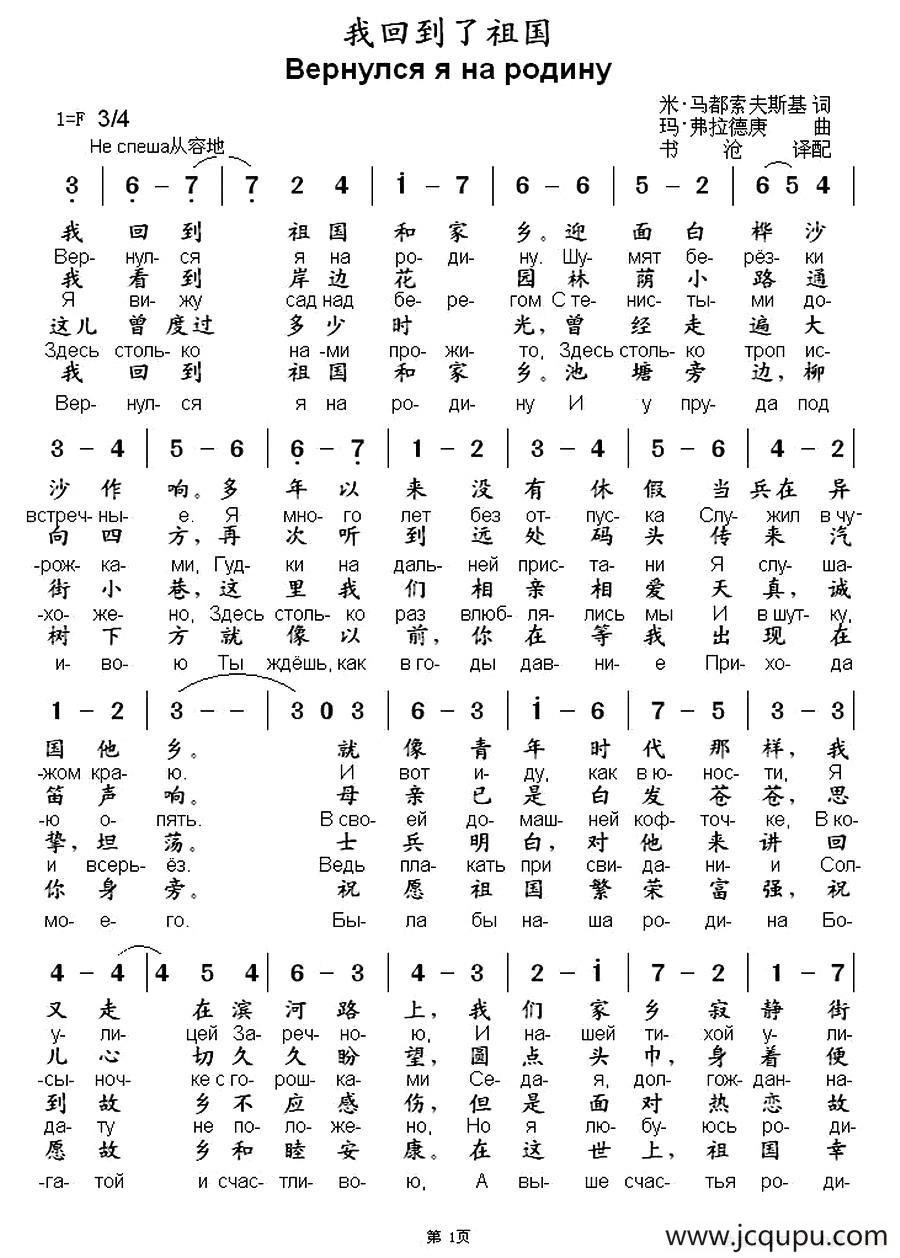 我回到了祖国
Вернулся я на родину
1=F 3/4
米·马都索夫斯基 词
玛·弗拉德庚 曲
书 沧 译配
Не спеша从容地
3 | 6 – 7 | 7 2 4 | i – 7 | 6 – 6 | 5 – 2 | 6 5 4 |
我 回 到 祖 国 和 家 乡。迎 面 白 桦 沙
Вер- нул- ся я на ро- ди- ну. Шу- мят бе- рёз- ки
我 看 到 岸 边 花 园 林 荫 小 路 通
Я ви- жу сад над бе- ре- гом С те- нис- ты- ми до-
这儿 曾 度过 多 少 时 光，曾 经 走 遍 大
Здесь столь- ко на -ми про- жи- то, Здесь столь- ко троп ис-
我 回 到 祖 国 和 家 乡。池 塘 旁 边，柳
Вер- нул- ся я на ро- ди- ну И у пру- да под
3 – 4 | 5 – 6 | 6 – 7 | 1 – 2 | 3 – 4 | 5 – 6 | 4 – 2 |
沙 作 响。多 年 以 来 没 有 休 假 当 兵在 异
встреч- ны- е. Я мно- го лет без от- пус- ка Слу- жил в чу-
向 四 方，再 次 听 到 远 处 码 头 传 来 汽
-рож- ка- ми, Гуд- ки на даль- ней прис- та- ни Я слу- ша-
街 小 巷，这 里 我 们 相 亲 相 爱 天 真，诚
-хо- же- но, Здесь столь- ко раз влюб- ля- лись мы И в шут- ку,
树 下 方 就 像 以 前，你 在 等 我 出 现 在
и- во- ю Ты ждёшь, как в го- ды дав- ни- е При- хо- да
1 – 2 | 3 – – | 3 0 3 | 6 – 3 | i – 6 | 7 – 5 | 3 – 3 |
国 他 乡。 就 像 青 年 时 代 那 样，我
-жом кра- ю. И вот и- ду, как в ю- нос- ти, Я
笛 声 响。 母 亲 已 是 白 发 苍 苍，思
-ю о- пять. В сво- ей до- маш- ней коф- точ- ке, В ко-
挚，坦 荡。 士 兵 明 白，对 他 来 讲 回
и всерь- ёз. Ведь пла- кать при сви- да- ни- и Сол-
你 身 旁。 祝 愿 祖 国 繁 荣 富 强，祝
мо- е- го. Бы- ла бы на- ша ро- ди- на Бо-
4 – 4 | 4 5 4 | 6 – 3 | 4 – 3 | 2 – i | 7 – 2 | 1 – 7 |
又 走 在 滨 河 路 上，我 们 家 乡 寂 静 街
у- ли- цей За- реч- но- ю, И на- шей ти- хой у- ли-
儿 心 切 久 久 盼 望，圆 点 头 巾，身 着 便
-сы- ноч- ке с го- рош- ка- ми Се- да- я, дол- гож- дан- на-
到 故 乡 不 应 感 伤，但 是 面 对 热 恋 故
да- ту не по- ло- же- но, Но я лю- бу- юсь ро- ди-
愿 故 乡 和 睦 安 康。在 这 世 上，祖 国 幸
-га- той и счас- тли- во- ю, А вы- ше счас- тья ро- ди-
第 1页
www.jcqupu.com